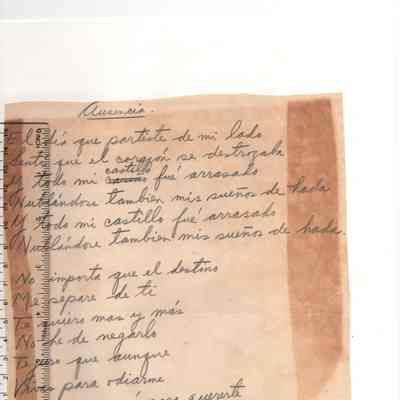 Ausencia.
El día que partiste de mi lado
Sentí que el corazón se destrozaba
Y todo mi castillo fué arrasado
Nublándose tambien mis sueños de hada
Y todo mi castillo fué arrasado
Nublándose tambien mis sueños de hada.
No importa que el destino
Me separe de ti
Te quiero mas y más
No he de negarlo
Te juro que aunque
Vivas para odiarme
para quererte